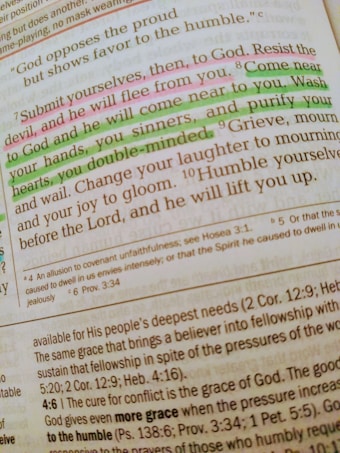 ing but does another.
me-playing, no mask wearing
"God opposes the proud
but shows favor to the humble." c
7 Submit yourselves, then, to God. Resist the
devil, and he will flee from you. 8 Come near
to God and he will come near to you. Wash
your hands, you sinners, and purify your
hearts, you double-minded. 9 Grieve, mourn
and wail. Change your laughter to mourning
and your joy to gloom. 10 Humble yourselve
before the Lord, and he will lift you up.
a 4 An allusion to covenant unfaithfulness; see Hosea 3:1. b 5 Or that the s
caused to dwell in us envies intensely; or that the Spirit he caused to dwell in u
jealously c 6 Prov. 3:34
available for His people's deepest needs (2 Cor. 12:9; Heb
The same grace that brings a believer into fellowship with
sustain that fellowship in spite of the pressures of the wo
5:20; 2 Cor. 12:9; Heb. 4:16).
4:6 | The cure for conflict is the grace of God. The good
God gives even more grace when the pressure increas
to the humble (Ps. 138:6; Prov. 3:34; 1 Pet. 5:5). Go
responsive to the prayers of those who humbly reque